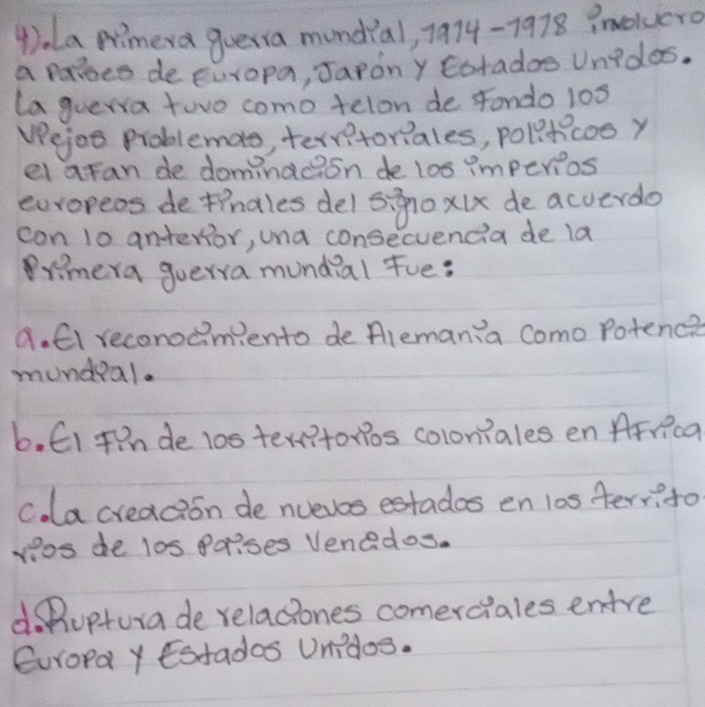 4). La primera guerra mundial, 1914-1918 involucro
a paises de Europa, Japón y Estados Unidos.
La guerra tuvo como telon de fondo los
viejos problemas, territoriales, politicos y
el afan de dominación de los imperios
europeos de finales del siglo xix de acuerdo
con lo anterior, una consecuencia de la
Primera guerra mundial fue:
a. El reconocimiento de Alemania como Potenci
mundial.
b. El fin de los territorios coloniales en Africa
c. La creación de nuevos estados en los territo
rios de los paises Vencidos.
d. Ruptura de relaciones comerciales entre
Europa y Estados Unidos.